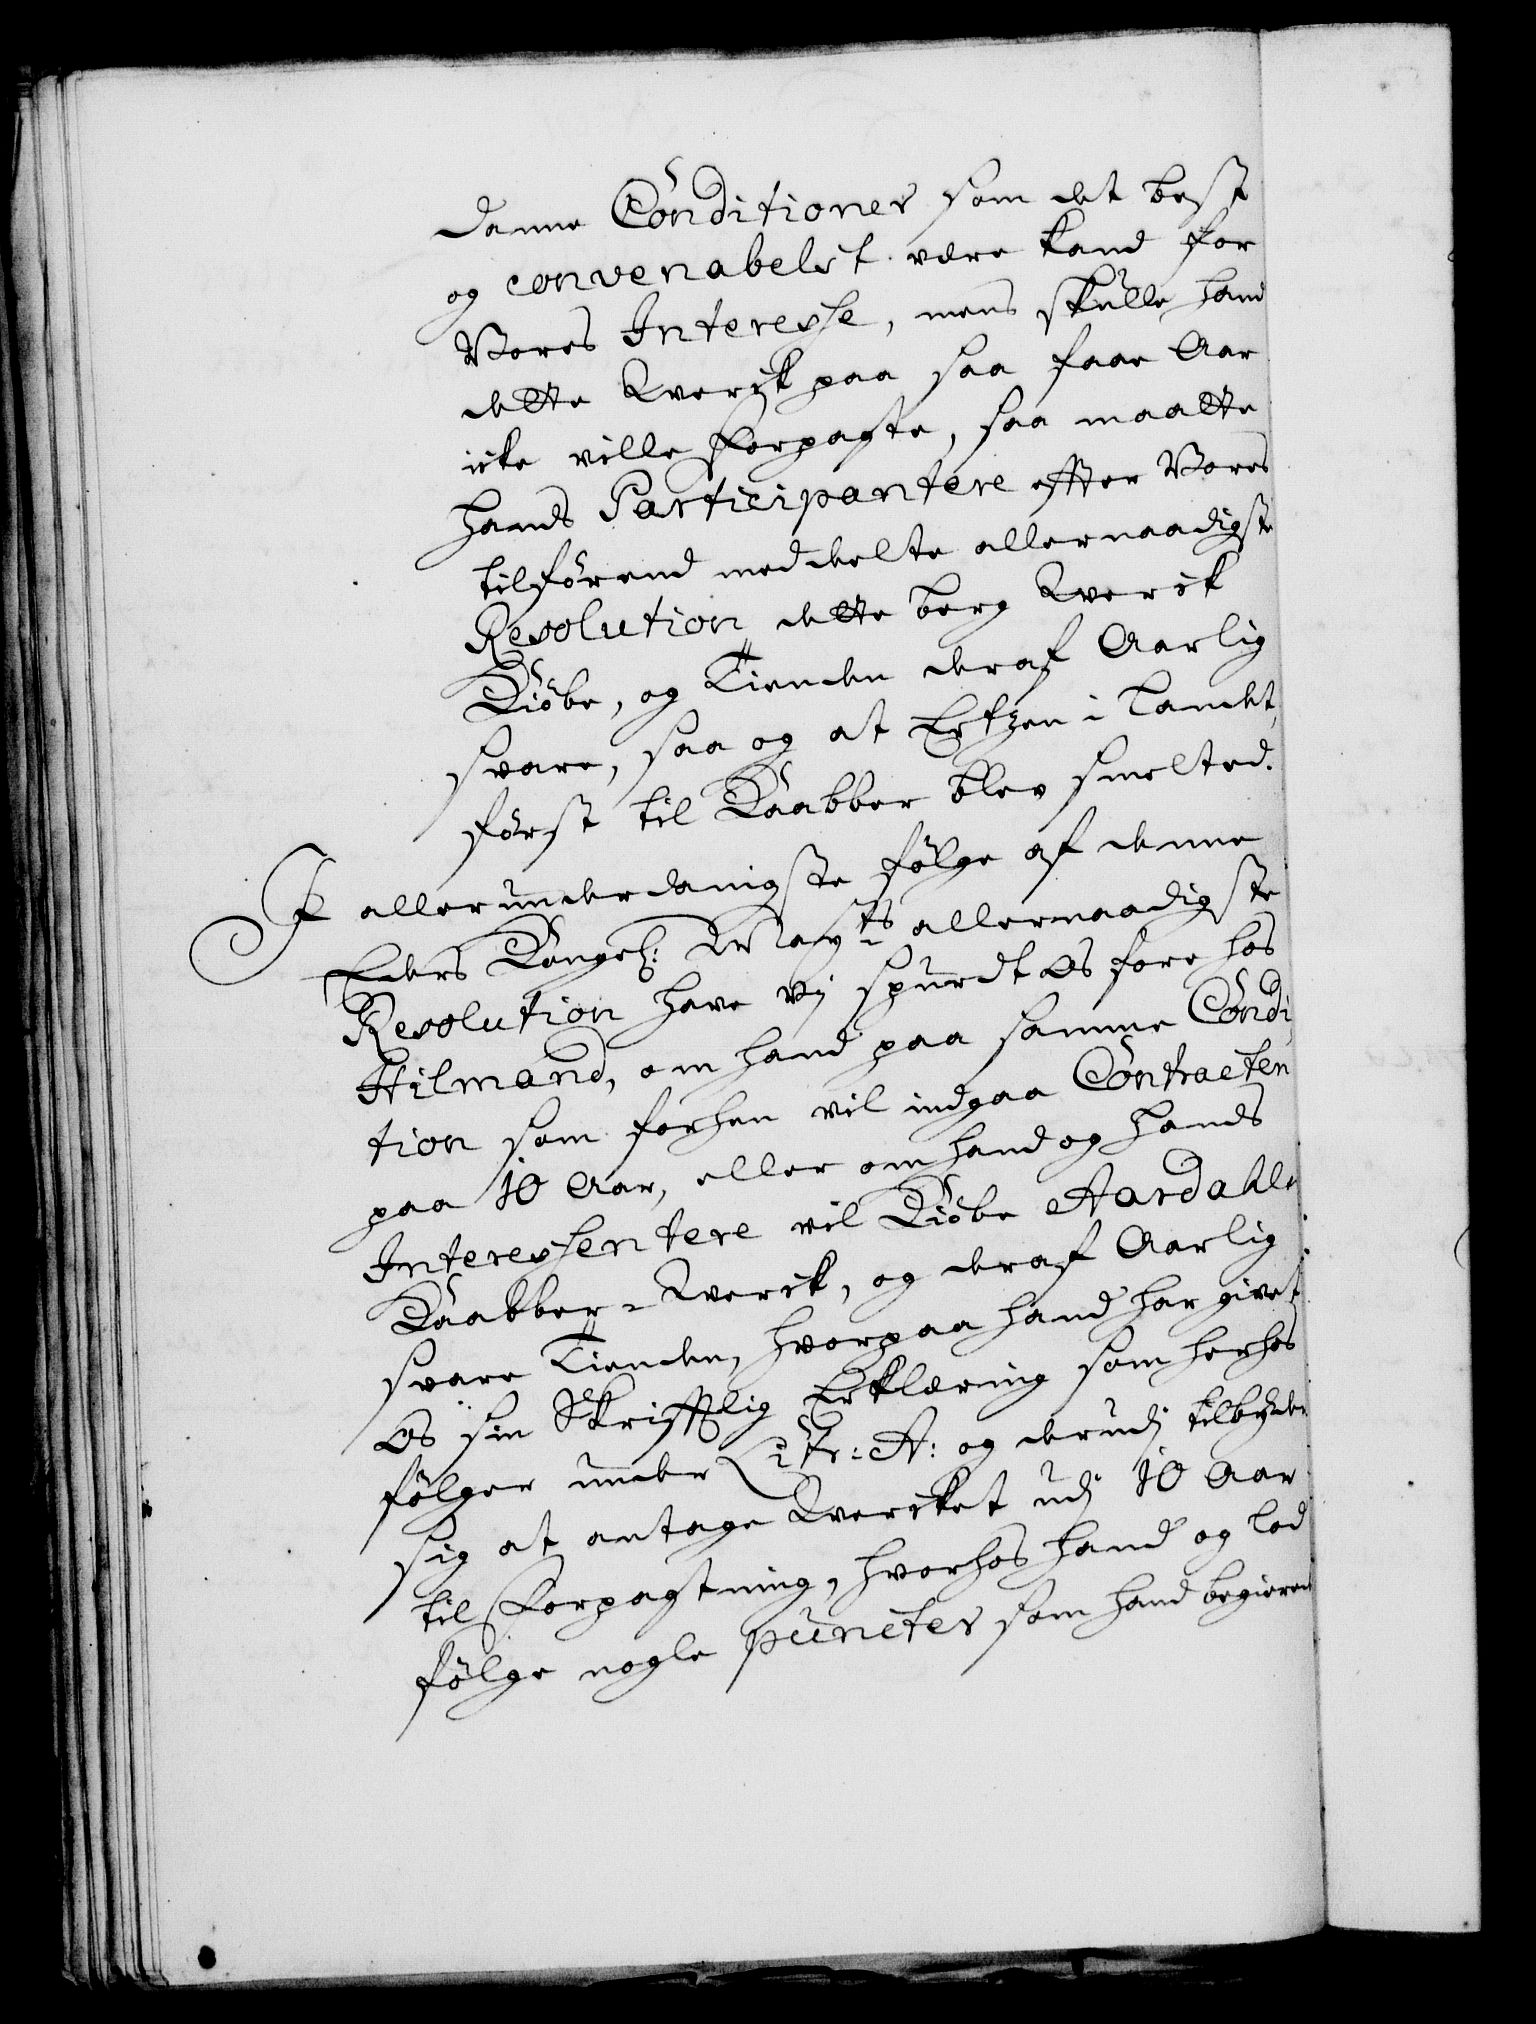 danne Conditioner som det best
og convenabelst være kand for
Vores Interesse, mens skulle hand
dette Værck paa saa faae Aar
icke ville forpagte, saa maatte
hands Participantere effter Vores
tilforend meddeelte allernaadigste
Resolution dette berg Værck
Kiöbe, og Tienden deraf Aarlig
svare, saa og at Ertzen i Landet,
först til Kaabber blev smelted.
I allerunderdanigste fölge af denne
Eders Kongel: Mayts allernaadigste
Resolution have vj spurdt Os fore hos
Hilmand, om hand paa samme Condi
tion som forhen vil indgaa Contracten
paa 10 Aar, eller om hand og hands
Interessentere vil Kiöbe Aardahls
Kaabber-Værck, og deraf Aarlig
svare Tienden, hvorpaa hand har givet
Os sin Skrifftlig Erklæring som herhos
fölger under Litr: A: og derudj tilbyder
sig at antage Værcket udj 10 Aar
til Forpagtning, hvorhos hand og lod
fölge nogle puncter som hand begierer